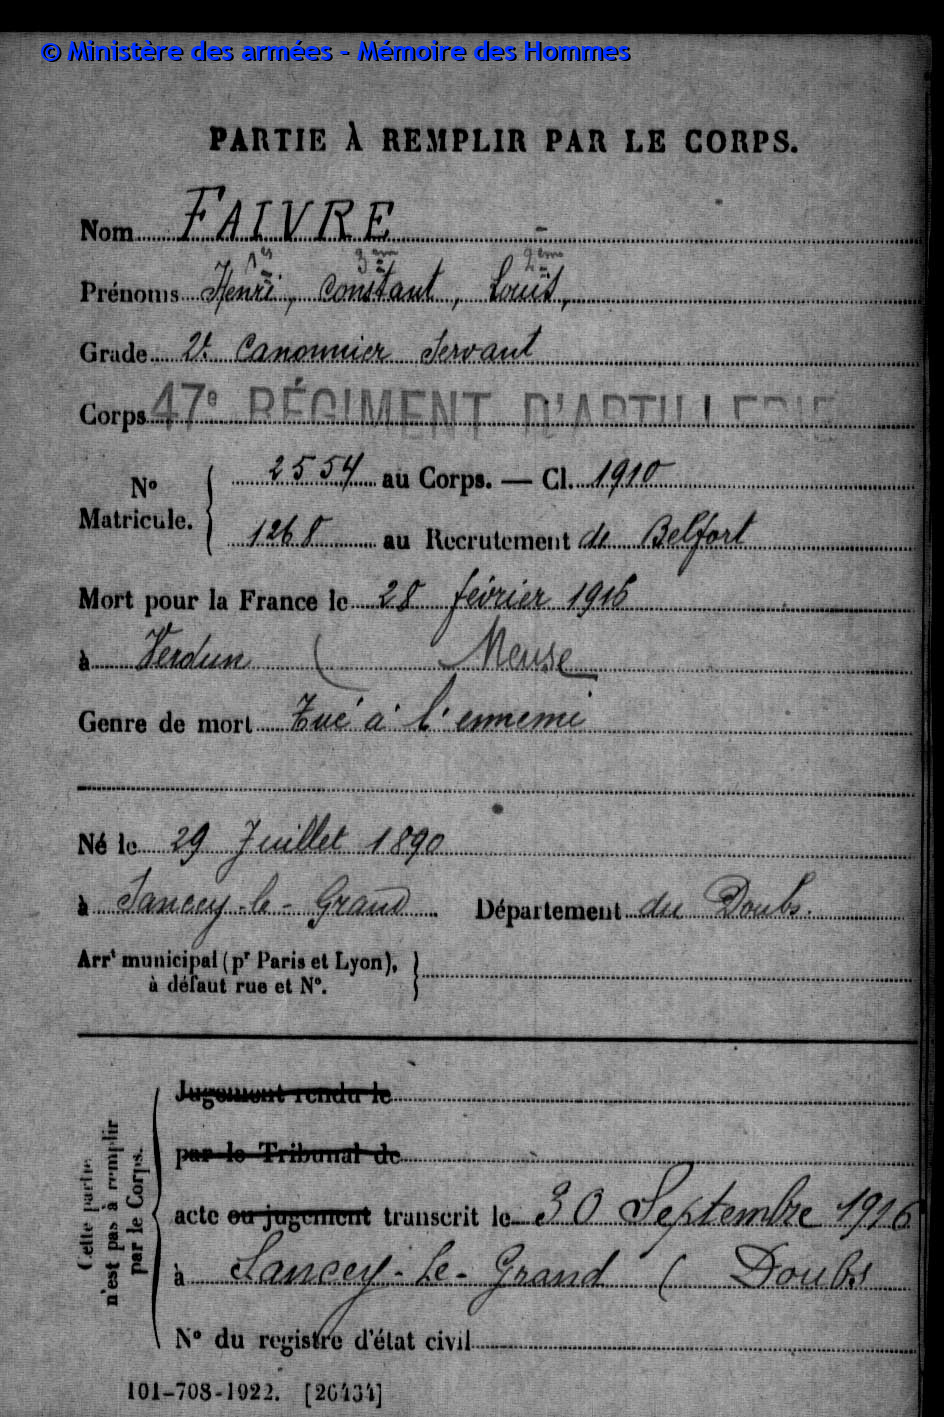 © Ministère des armées - Mémoire des Hommes
PARTIE À REMPLIR PAR LE CORPS.
Nom FAIVRE
1er 3ème 2ème
Prénoms Henri, Constant, Louis,
Grade 2e Canonnier Servant
Corps 47e RÉGIMENT D'ARTILLERIE
No Matricule. 2554 au Corps. — Cl. 1910
1268 au Recrutement de Belfort
Mort pour la France le 28 février 1916
à Verdun ( Meuse
Genre de mort Tué à l'ennemi
Né le 29 Juillet 1890
à Sancey-le-Grand Département du Doubs.
Arrt municipal (pr Paris et Lyon),
à défaut rue et No.
Cette partie
n'est pas à remplir
par le Corps.
Jugement rendu le
par le Tribunal de
acte ou jugement transcrit le 30 Septembre 1916
à Sancey-le-Grand ( Doubs
No du registre d'état civil
101-708-1922. [26434]